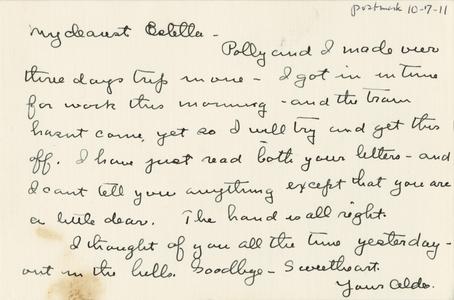 postmark 10-7-11
My dearest Estella -
Polly and I made our
three days trip in one - I got in in time
for work this morning - and the train
hasnt come yet so I will try and get this
off. I have just read both your letters - and
I cant tell you anything except that you are
a little dear. The hand is all right.
I thought of you all the time yesterday -
out in the hills. Goodbye - Sweetheart.
Your Aldo.